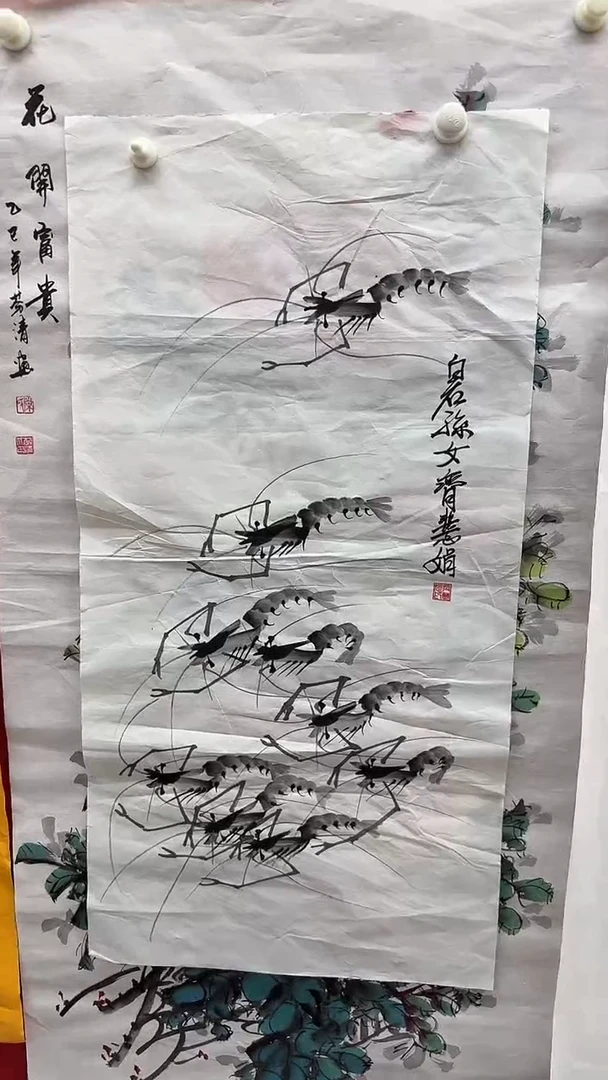 花開富貴
乙巳年芬清畫
白石孫女齊慧娟